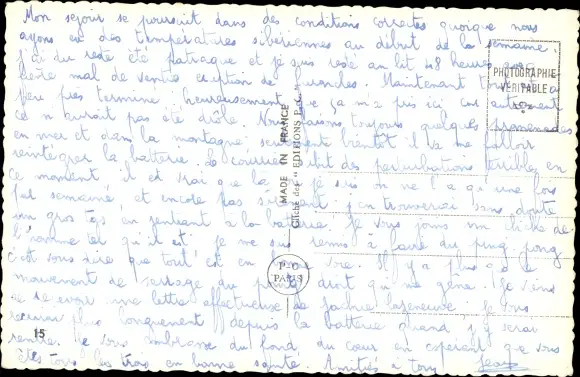 Mon séjour se poursuit dans des conditions correctes quoique nous
ayons eu des températures sibériennes au début de la semaine.
j'ai du reste été patraque et je suis resté au lit 48 heures
fièvre mal de ventre éruption de furoncles. Maintenant
peu près terminé heureusement que ça m'a pris ici car autrement
cel n'aurait pas été drôle. Nous faisons toujours quelques promenades
en mer et dans la montagne, seulement bientôt il va me falloir
réintégrer la batterie. Le courrier subit des perturbations terribles en
ce moment il est vrai que la
par semaine et encore pas souvent j'en trouverai sans doute
un gros tas en rentrant à la batterie. Je vous joins un cliché de
l'homme tel qu'il est. Je me suis remis à faire du ping pong
c'est vous dire que tout est en Il n'y a plus que le
mouvement de serrage du droit qui me gêne. Je viens
de recevoir une lettre affectueuse de je vous
écrirai plus longuement depuis la batterie quand j'y serai
rentré. Je vous embrasse du fond du coeur en espérant que vous
êtes tous les trois en bonne santé. Amitiés à tous. Jean
PHOTOGRAPHIE
VÉRITABLE
MADE IN FRANCE
Cliché des "EDITIONS P.C."
P C
PARIS
15